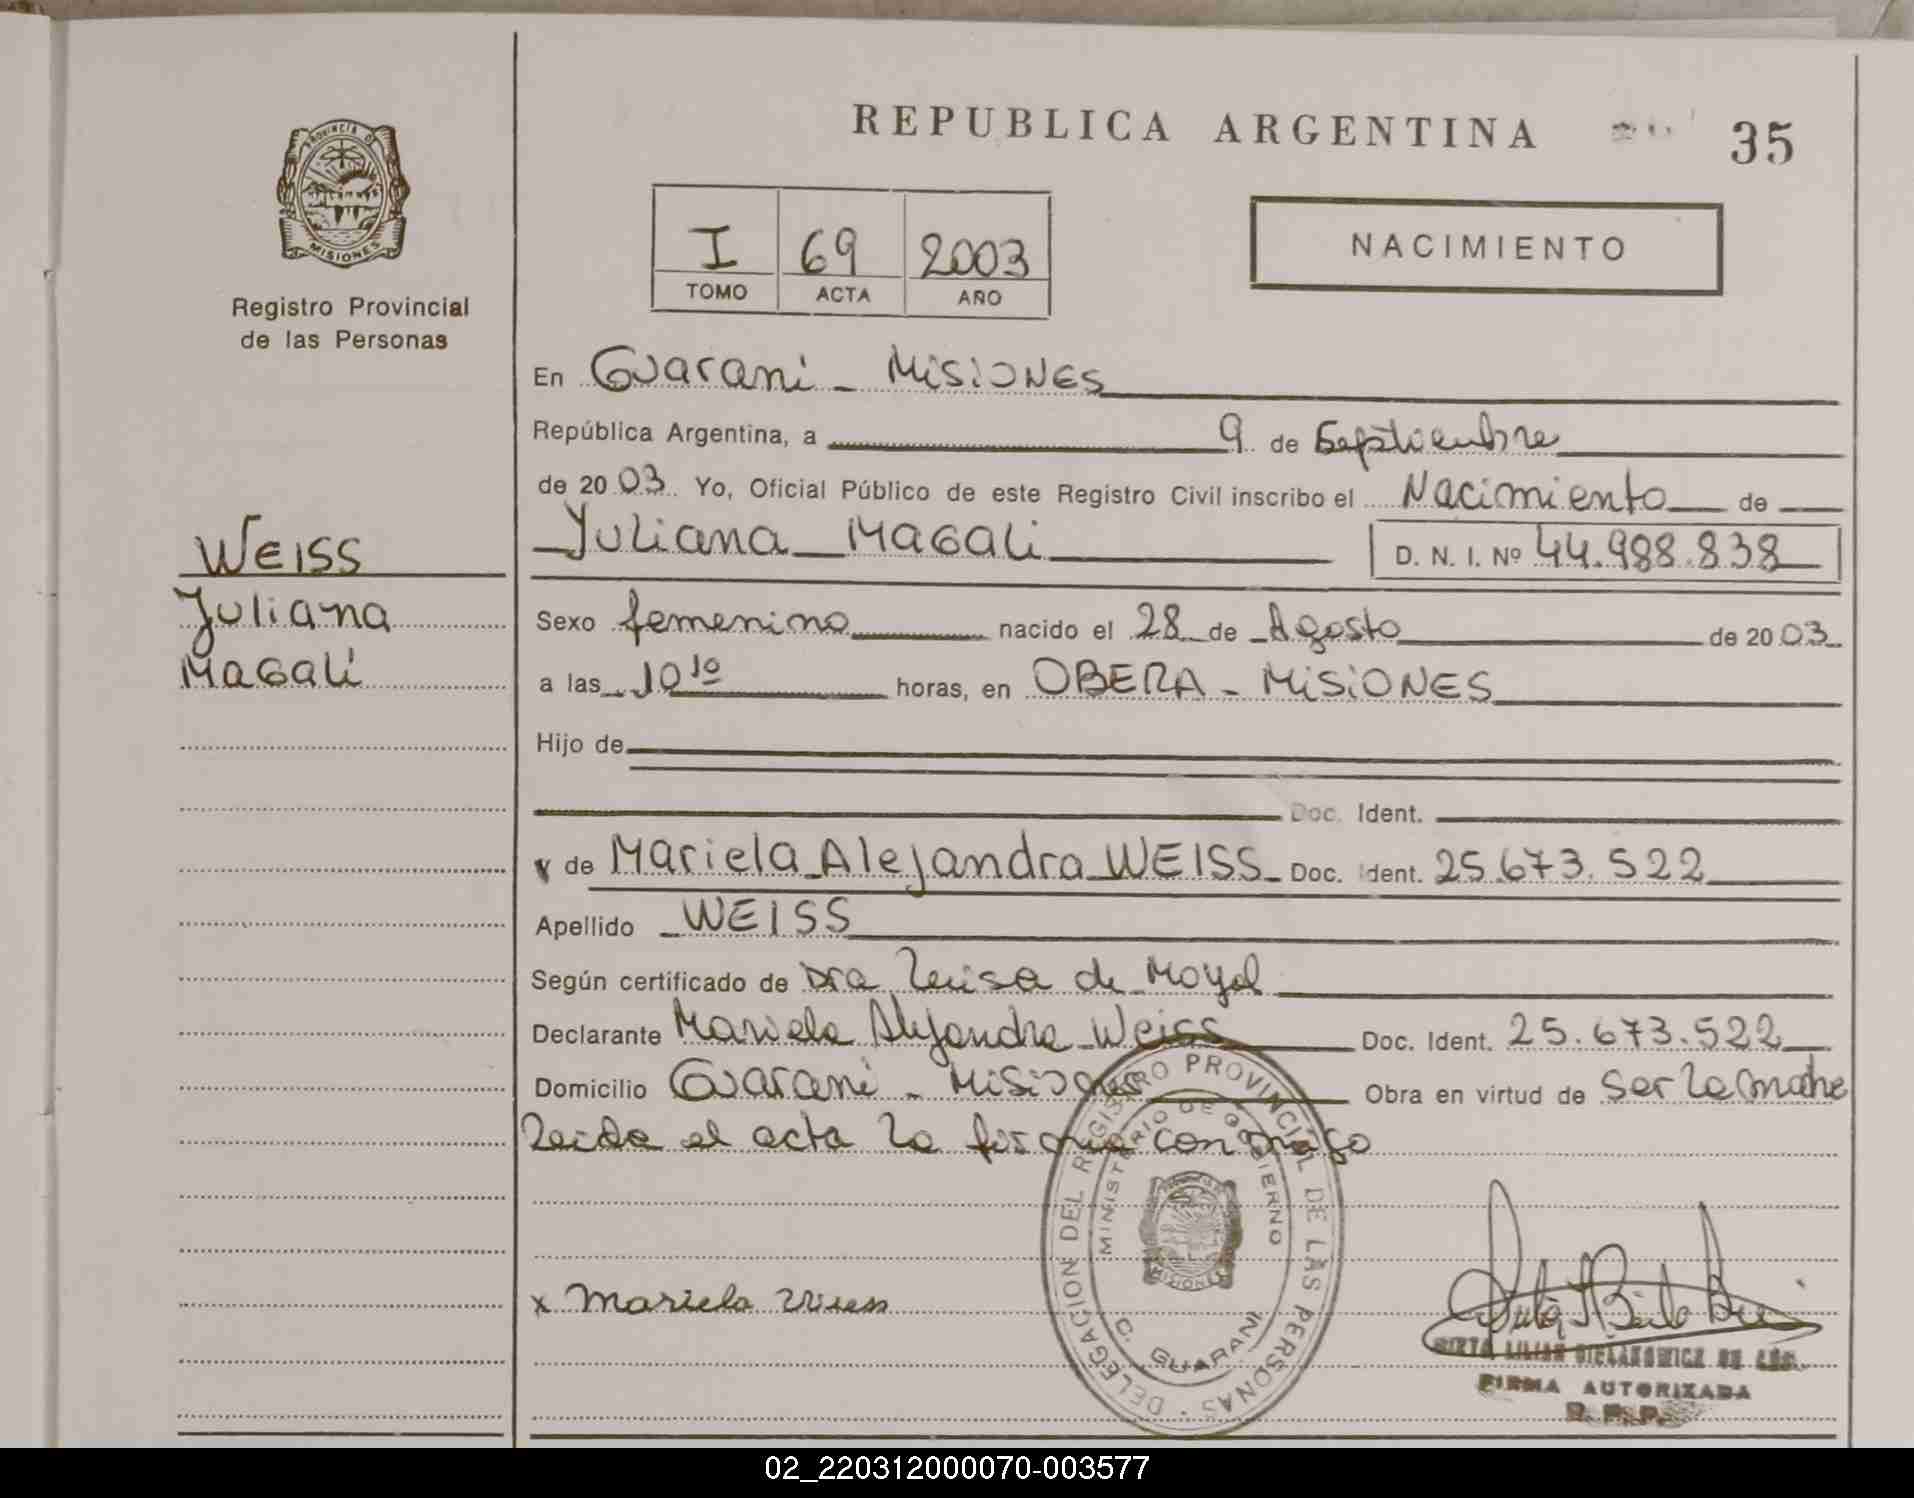 REPUBLICA ARGENTINA
35
PROVINCIA DE
MISIONES
Registro Provincial
de las Personas
I 69 2003
TOMO ACTA AÑO
NACIMIENTO
En Guarani - Misiones
República Argentina, a 9 de Septiembre
de 2003 Yo, Oficial Público de este Registro Civil inscribo el Nacimiento de
Juliana Magali D. N. I. Nº 44.988.838
WEISS
Juliana
Magali
Sexo femenino nacido el 28 de Agosto de 2003
a las 10 10 horas, en OBERA - MISIONES
Hijo de
Doc. Ident.
y de Mariela Alejandra WEISS Doc. Ident. 25.673.522
Apellido WEISS
Según certificado de Dra Luisa de Moyal
Declarante Mariela Alejandra Weiss Doc. Ident. 25.673.522
Domicilio Guarani - Misiones Obra en virtud de ser la madre
leida el acta la firma conmigo
DELEGACION DEL REGISTRO PROVINCIAL DE LAS PERSONAS
MINISTERIO DE GOBIERNO
MISIONES
C. GUARANI
x Mariela Weiss
LILIAN
FIRMA AUTORIZADA
R. P. P.
02_220312000070-003577